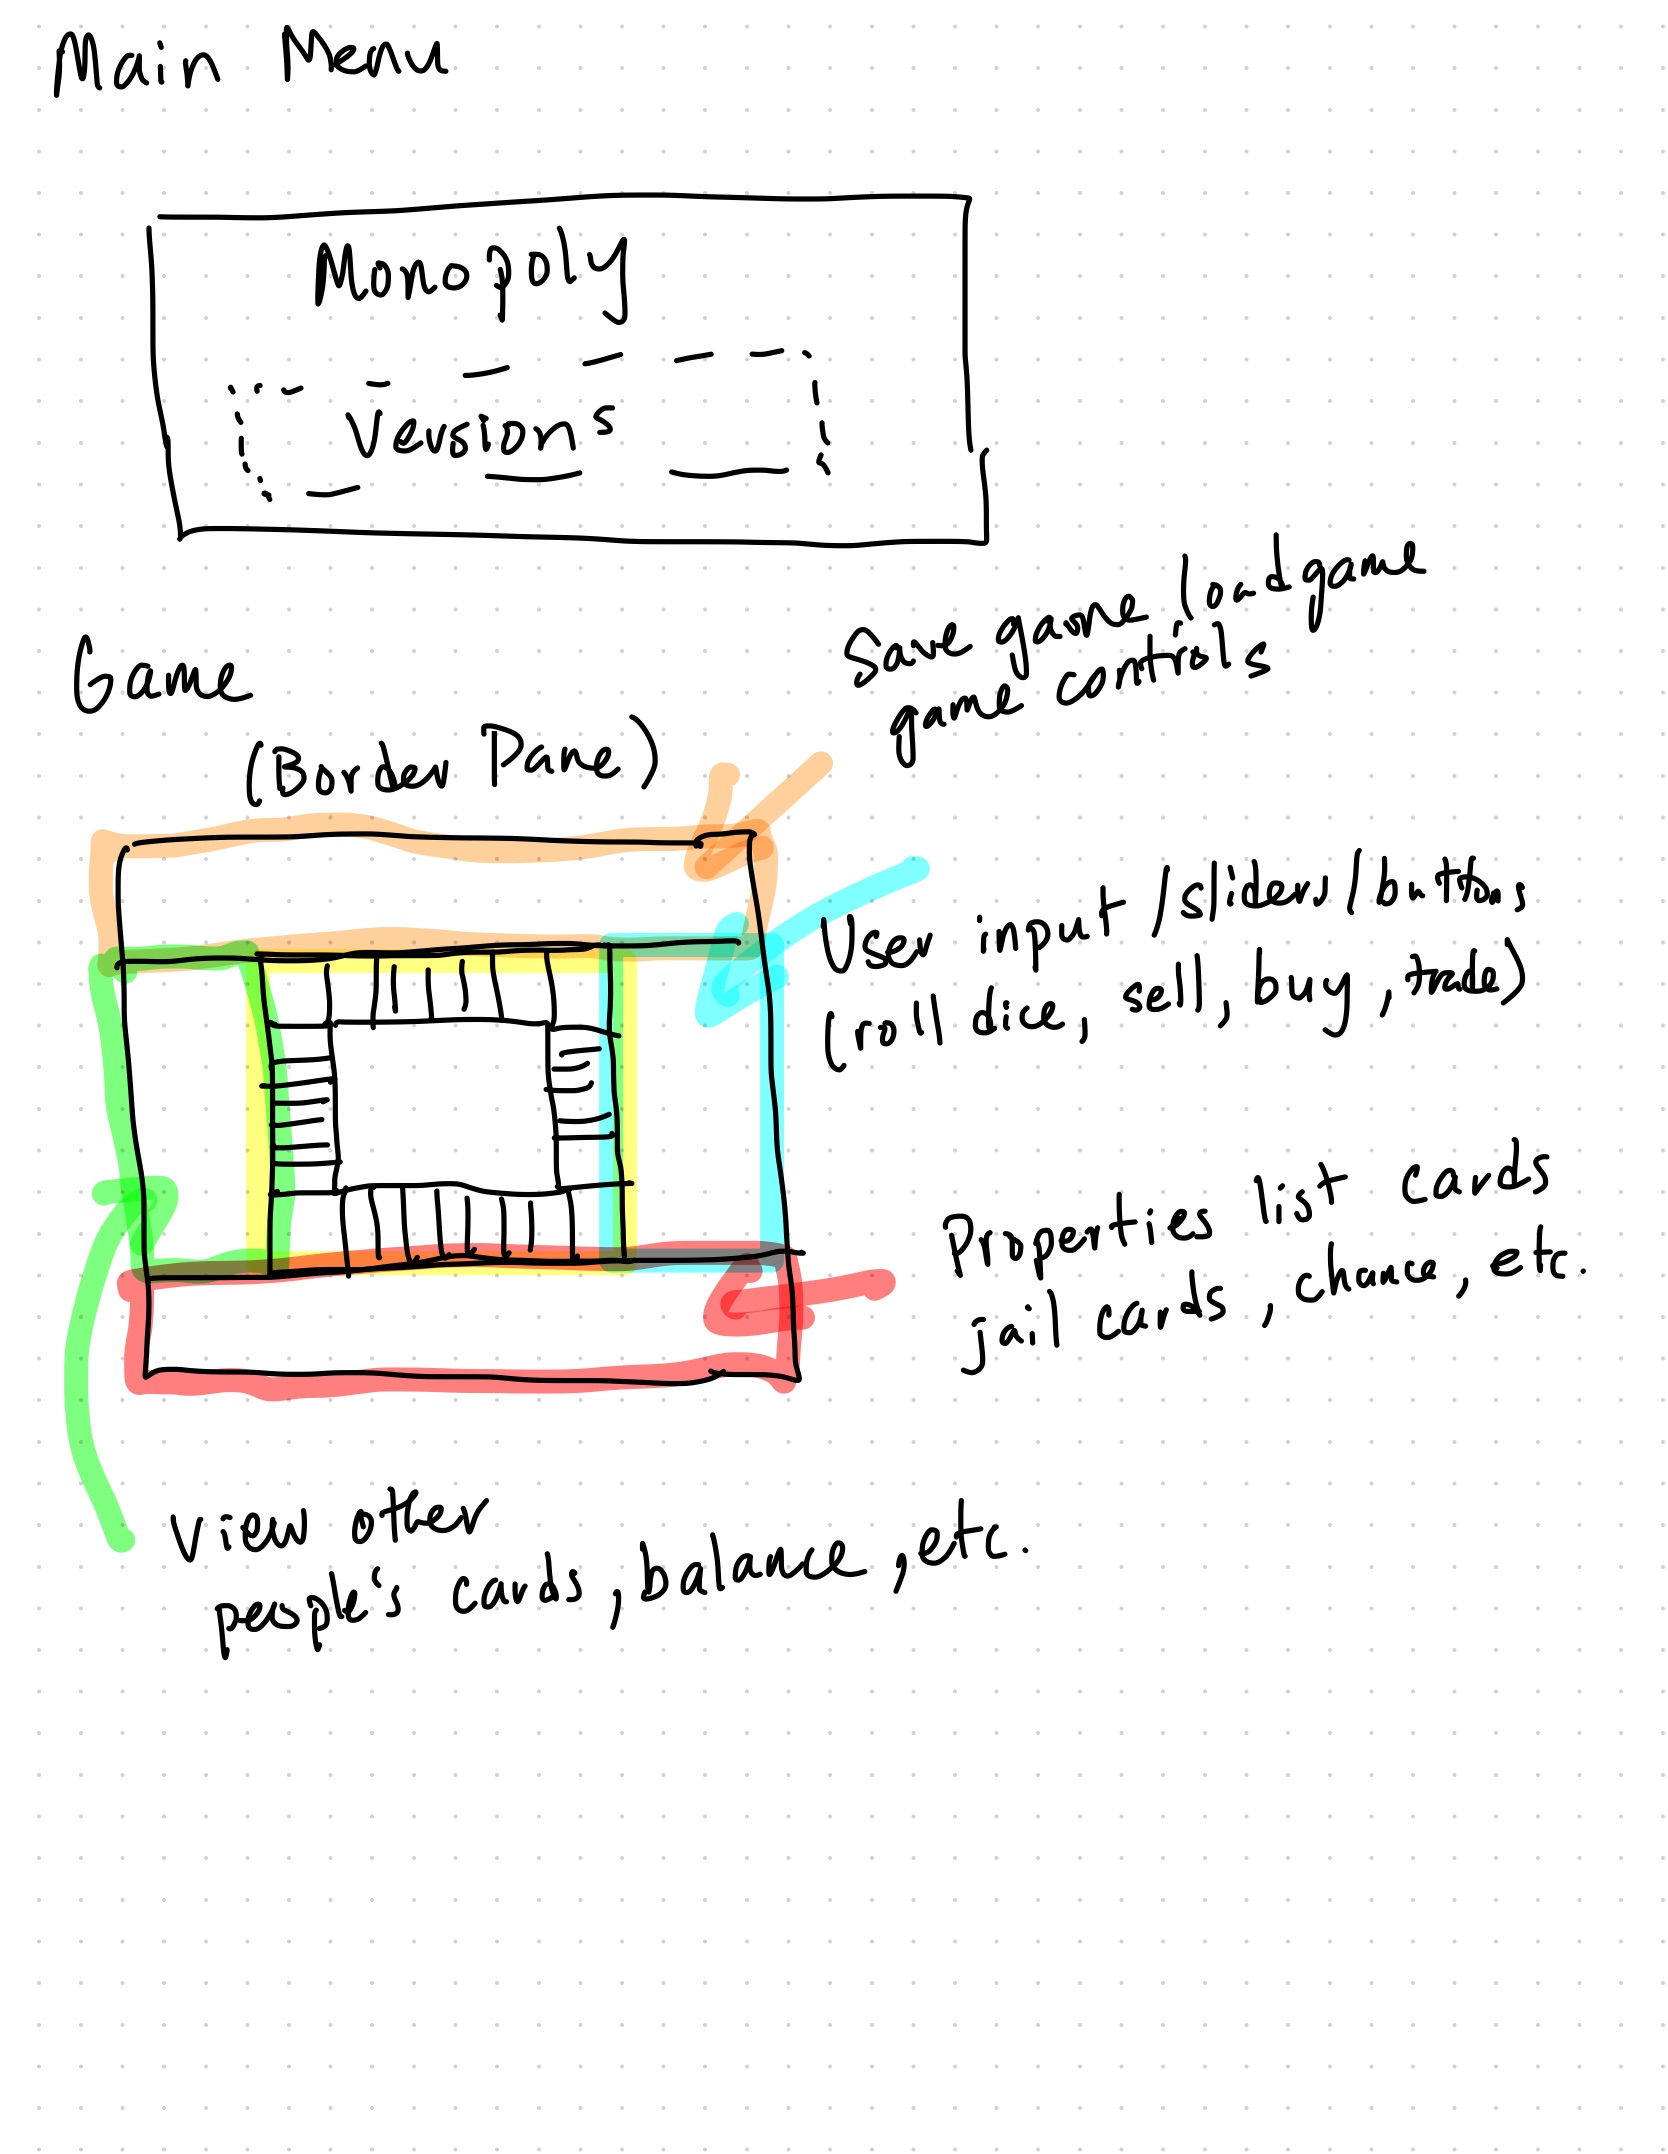 Main Menu
Monopoly
Versions
Save game load game
game controls
Game
(Border Pane)
User input / sliders / buttons
(roll dice, sell, buy, trade)
Properties list cards
jail cards, chance, etc.
View other
people's cards, balance, etc.